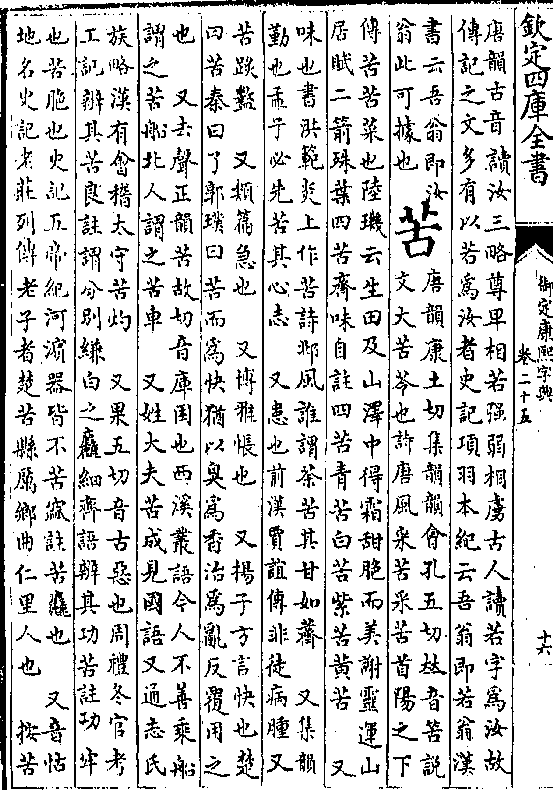 欽定四庫全書
御定康熙字典
卷二十五
十六
唐韻古音讀汝三略尊卑相若强弱相虜古人讀若字爲汝故
傳記之文多有以若爲汝者史記項羽本紀云吾翁即若翁漢
書云吾翁即汝
翁此可據也
苦
唐韻康土切集韻韻會孔五切𠀤音笘說
文大苦苓也詩唐風采苦采苦首陽之下
傳苦苦菜也陸璣云生田及山澤中得霜甜脆而美謝靈運山
居賦二箭殊葉四苦齊味自註四苦青苦白苦紫苦黄苦 又
味也書洪範炎上作苦詩邶風誰謂荼苦其甘如薺 又集韻
勤也孟子必先苦其心志 又患也前漢賈誼傳非徒病腫又
苦𨂂盭 又類篇急也 又博雅悵也 又揚子方言快也楚
曰苦秦曰了郭璞曰苦而爲快猶以臭爲香治爲亂反覆用之
也 又去聲正韻苦故切音庫困也西溪叢語今人不善乘船
謂之苦船北人謂之苦車 又姓大夫苦成見國語又通志氏
族略漢有會稽太守苦灼 又果五切音古惡也周禮冬官考
工記辨其苦良註謂分别縑白之麤細齊語辨其功苦註功牢
也苦脆也史記五帝紀河濵器皆不苦窳註苦麤也 又音怙
地名史記老莊列傳老子者楚苦縣厲鄉曲仁里人也 按苦